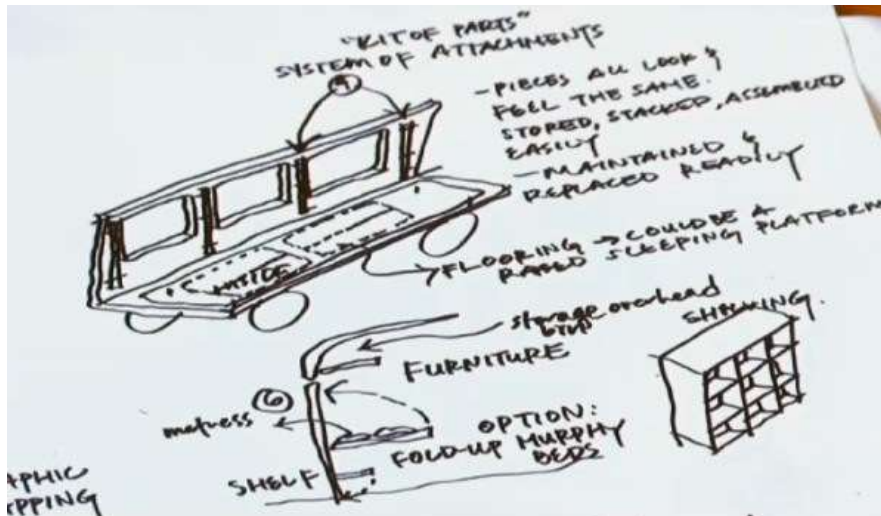 "KIT OF PARTS"
SYSTEM OF ATTACHMENTS
4
- PIECES ALL LOOK &
FEEL THE SAME.
STORED, STACKED, ASSEMBLED
EASILY
- MAINTAINED &
REPLACED READILY
FLOORING → COULD BE A
RAISED SLEEPING PLATFORM
storage overhead
FURNITURE
6
OPTION:
FOLD-UP MURPHY
BEDS
SHELF
APHIC